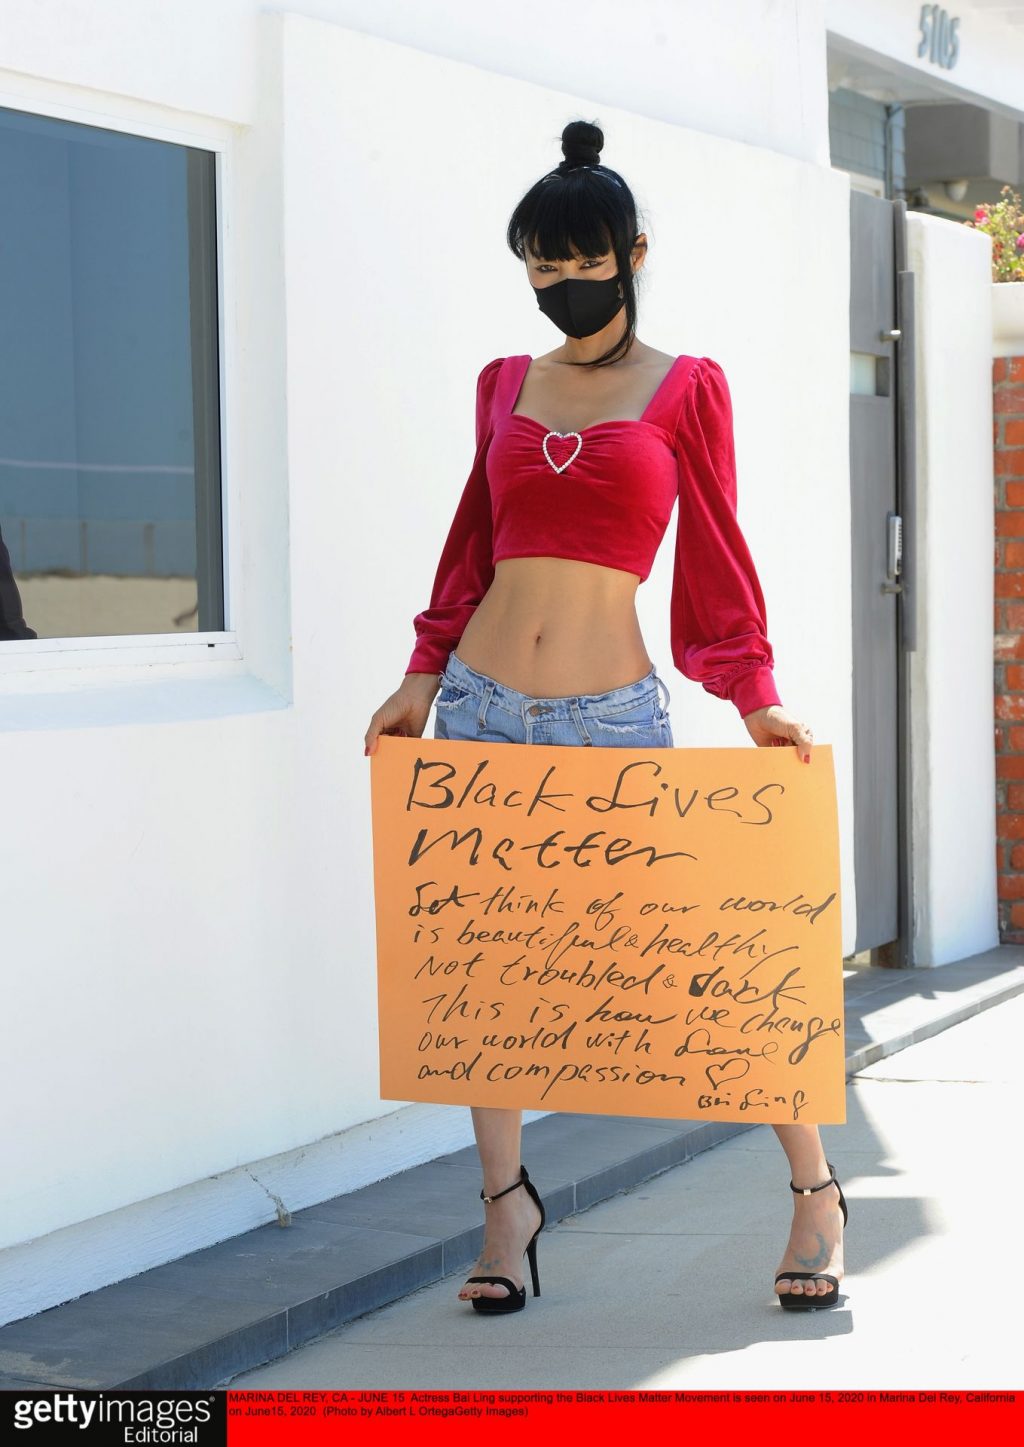 5105
Black Lives
Matter
Let think of our world
is beautiful & healthy
Not troubled & dark
This is how we change
our world with Love
and compassion ♡
Bai Ling
gettyimages®
Editorial
MARINA DEL REY, CA - JUNE 15 Actress Bai Ling supporting the Black Lives Matter Movement is seen on June 15, 2020 in Marina Del Rey, California
on June15, 2020 (Photo by Albert L OrtegaGetty Images)